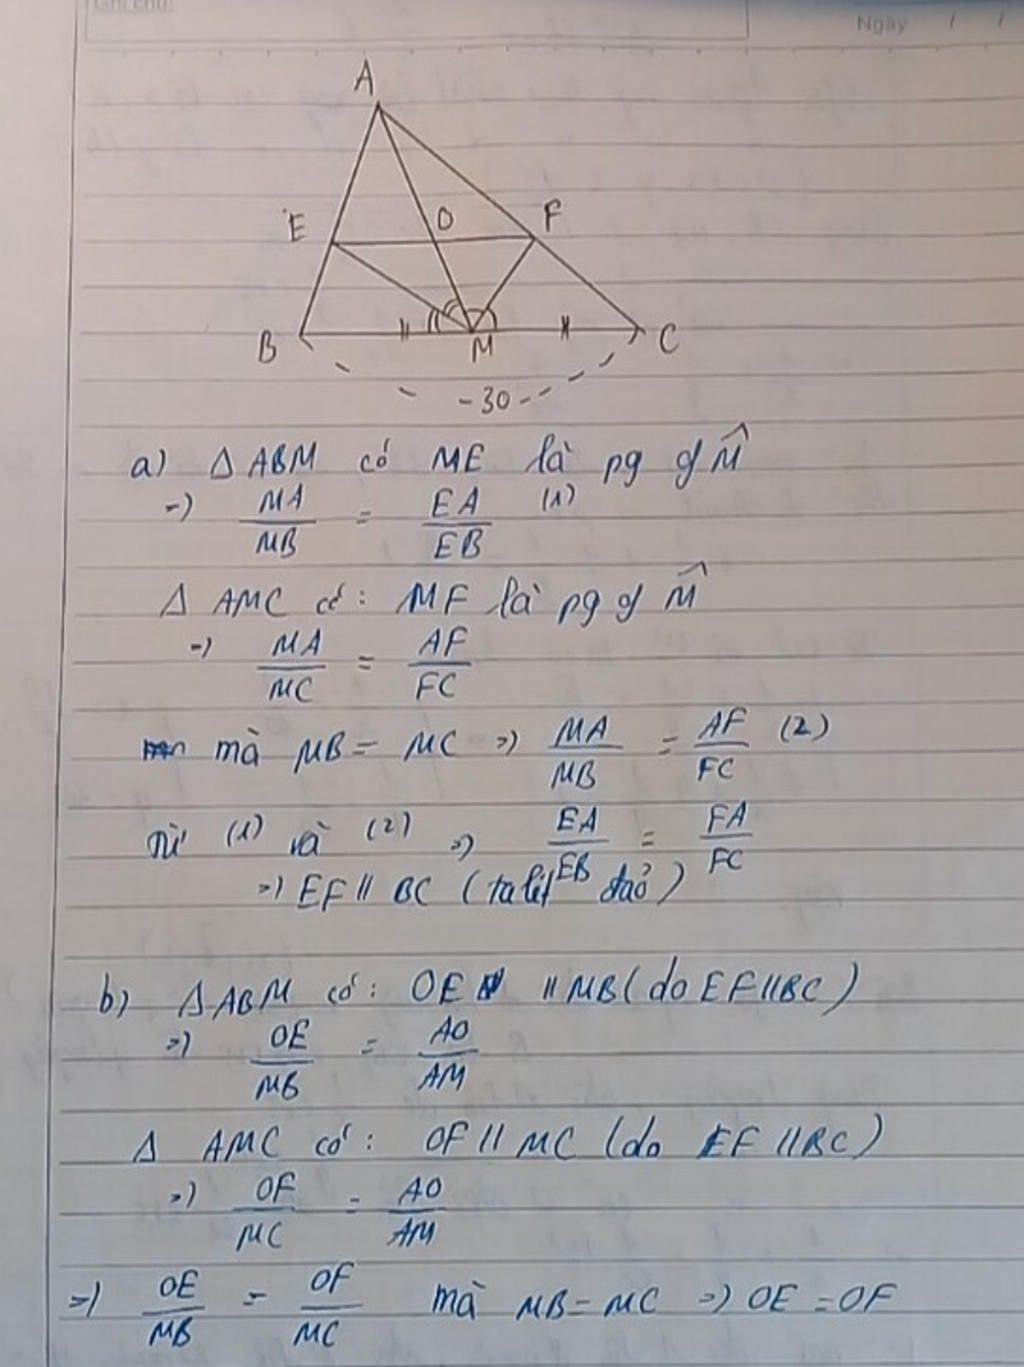 Ghi chú:
Ngày / /
A
E O F
B M C
- 30 -
a) Δ ABM có ME là pg of M̂
=) MA/MB = EA/EB (1)
Δ AMC có: MF là pg of M̂
=) MA/MC = AF/FC
mà MB = MC =) MA/MB = AF/FC (2)
Từ (1) và (2) =) EA/EB = FA/FC
=) EF // BC (talét đảo)
b) Δ ABM có: OE // MB (do EF // BC)
=) OE/MB = AO/AM
Δ AMC có: OF // MC (do EF // BC)
=) OF/MC = AO/AM
=) OE/MB = OF/MC mà MB = MC =) OE = OF